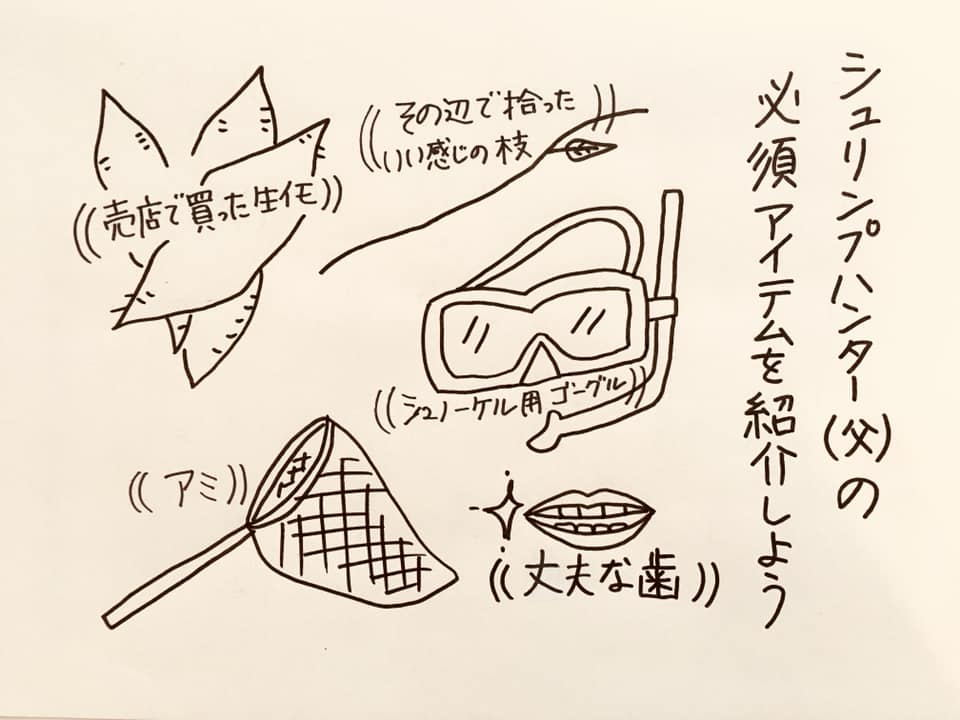 シュリンプハンター(父)の
必須アイテムを紹介しよう
その辺で拾った
いい感じの枝
売店で買った生イモ
シュノーケル用ゴーグル
アミ
丈夫な歯